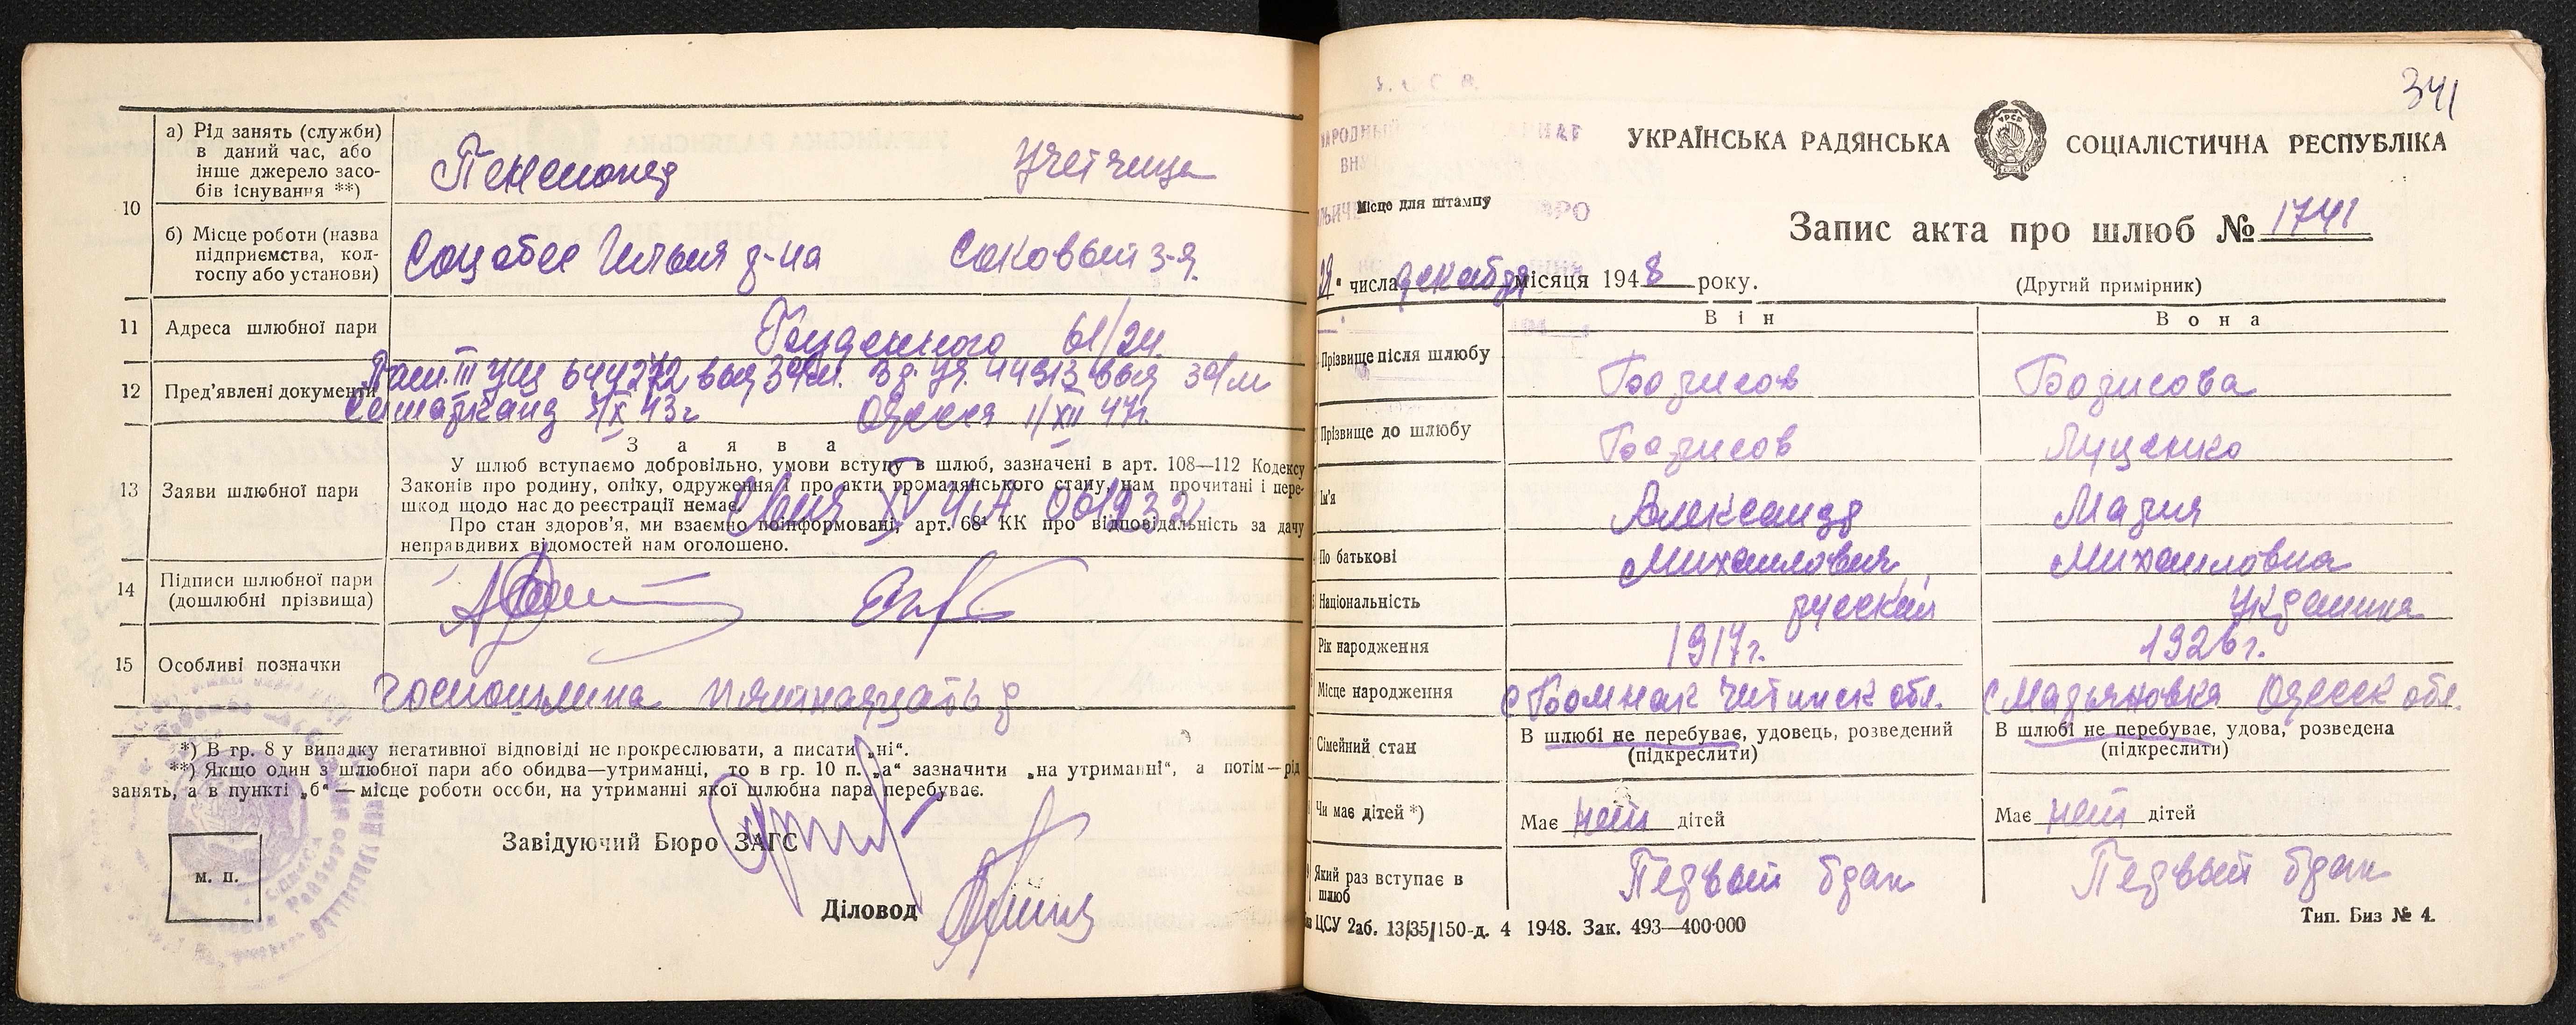 а) Рід занять (служби)
в даний час, або
інше джерело засо-
бів існування **)
Пенсионер
Учетчица
10
б) Місце роботи (назва
підприємства, кол-
госпу або установи)
Соцобес Ильич р-на
Соковый з-д.
11
Адреса шлюбної пари
61/24.
12
Пред'явлені документи
Пасп. III УЦ 644272 выд 3 о/м. Вр. уд. 44913 выд 3 о/м
5/IX 43 г Одесса 1/XII 47 г.
13
Заяви шлюбної пари
Заява
У шлюб вступаємо добровільно, умови вступу в шлюб, зазначені в арт. 108—112 Кодексу
Законів про родину, опіку, одруження і про акти громадянського стану, нам прочитані і пере-
шкод щодо нас до реєстрації немає.
Про стан здоров'я, ми взаємно поінформовані, арт. 68¹ КК про відповідальність за дачу
неправдивих відомостей нам оголошено.
14
Підписи шлюбної пари
(дошлюбні прізвища)
15
Особливі позначки
госпошлина пятнадцать р
*) В гр. 8 у випадку негативної відповіді не прокреслювати, а писати „ні“.
**) Якщо один з шлюбної пари або обидва—утриманці, то в гр. 10 п. „а“ зазначити „на утриманні“, а потім—рід
занять, а в пункті „б“ — місце роботи особи, на утриманні якої шлюбна пара перебуває.
Завідуючий Бюро ЗАГС
м. п.
Діловод
341
УКРАЇНСЬКА РАДЯНСЬКА СОЦІАЛІСТИЧНА РЕСПУБЛІКА
Місце для штампу
Запис акта про шлюб № 1741
29 числа декабря місяця 1948 року.
(Другий примірник)
Він
Вона
Прізвище після шлюбу
Борисов
Борисова
Прізвище до шлюбу
Борисов
Луценко
Ім'я
Александр
Мария
По батькові
Михайлович
Михайловна
Національність
русский
украинка
Рік народження
1917 г.
1926 г.
Місце народження
с Бомнак Читинск обл.
с Марьяновка Одесск обл.
Сімейний стан
В шлюбі не перебуває, удовець, розведений
(підкреслити)
В шлюбі не перебуває, удова, розведена
(підкреслити)
Чи має дітей *)
Має нет дітей
Має нет дітей
Який раз вступає в
шлюб
Первый брак
Первый брак
ЦСУ 2аб. 13/35/150-д. 4 1948. Зак. 493—400·000
Тип. Биз № 4.